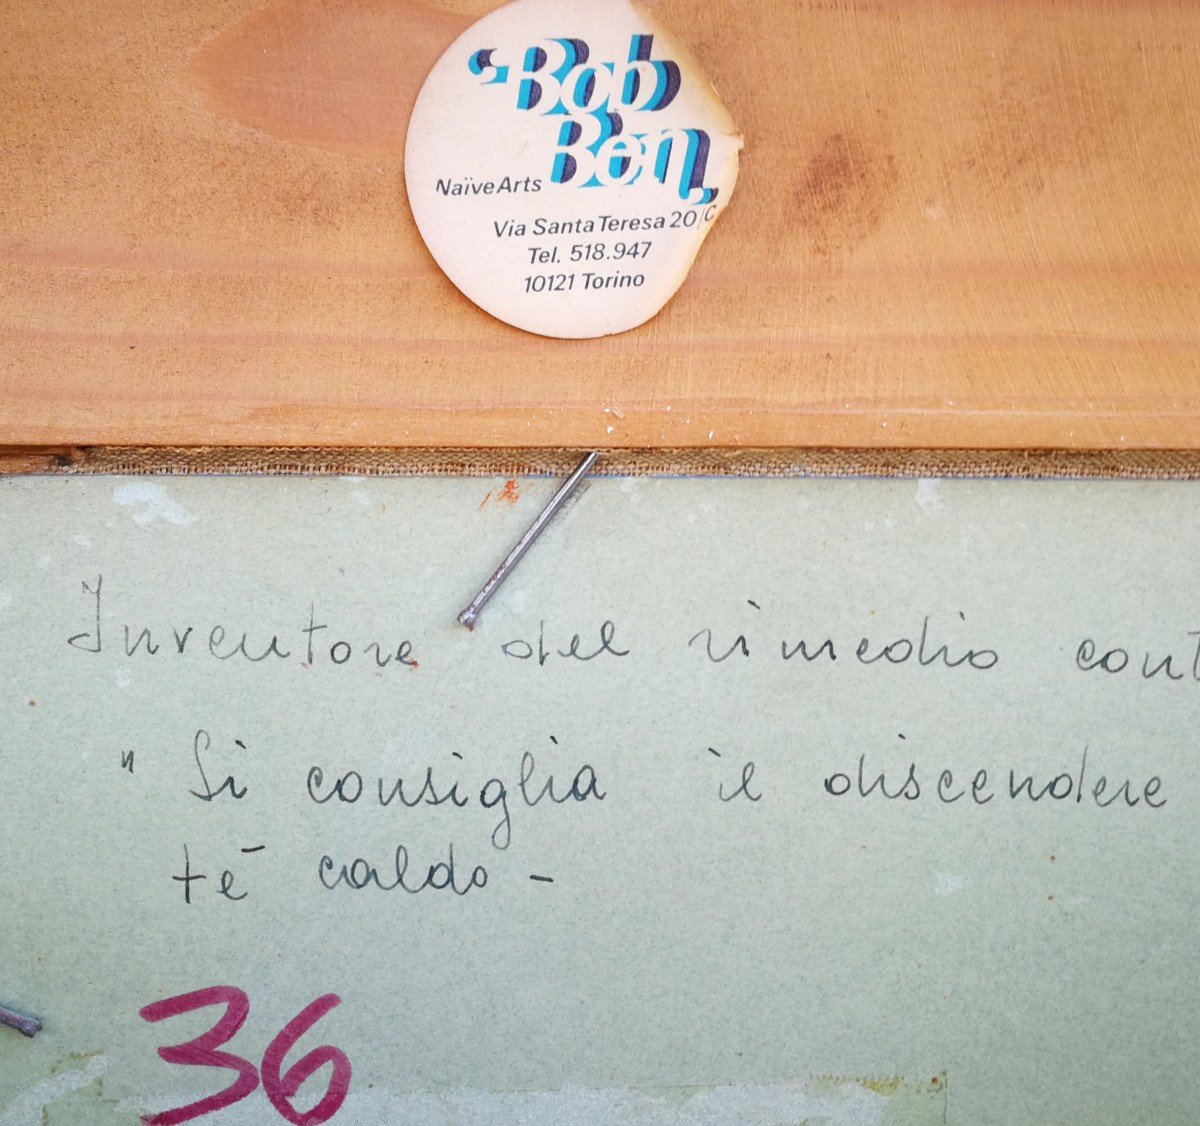 "Bob
Ben"
Naïve Arts
Via Santa Teresa 20/C
Tel. 518.947
10121 Torino
Inventore del rimedio cont
" Si consiglia il discendere
té caldo -
36